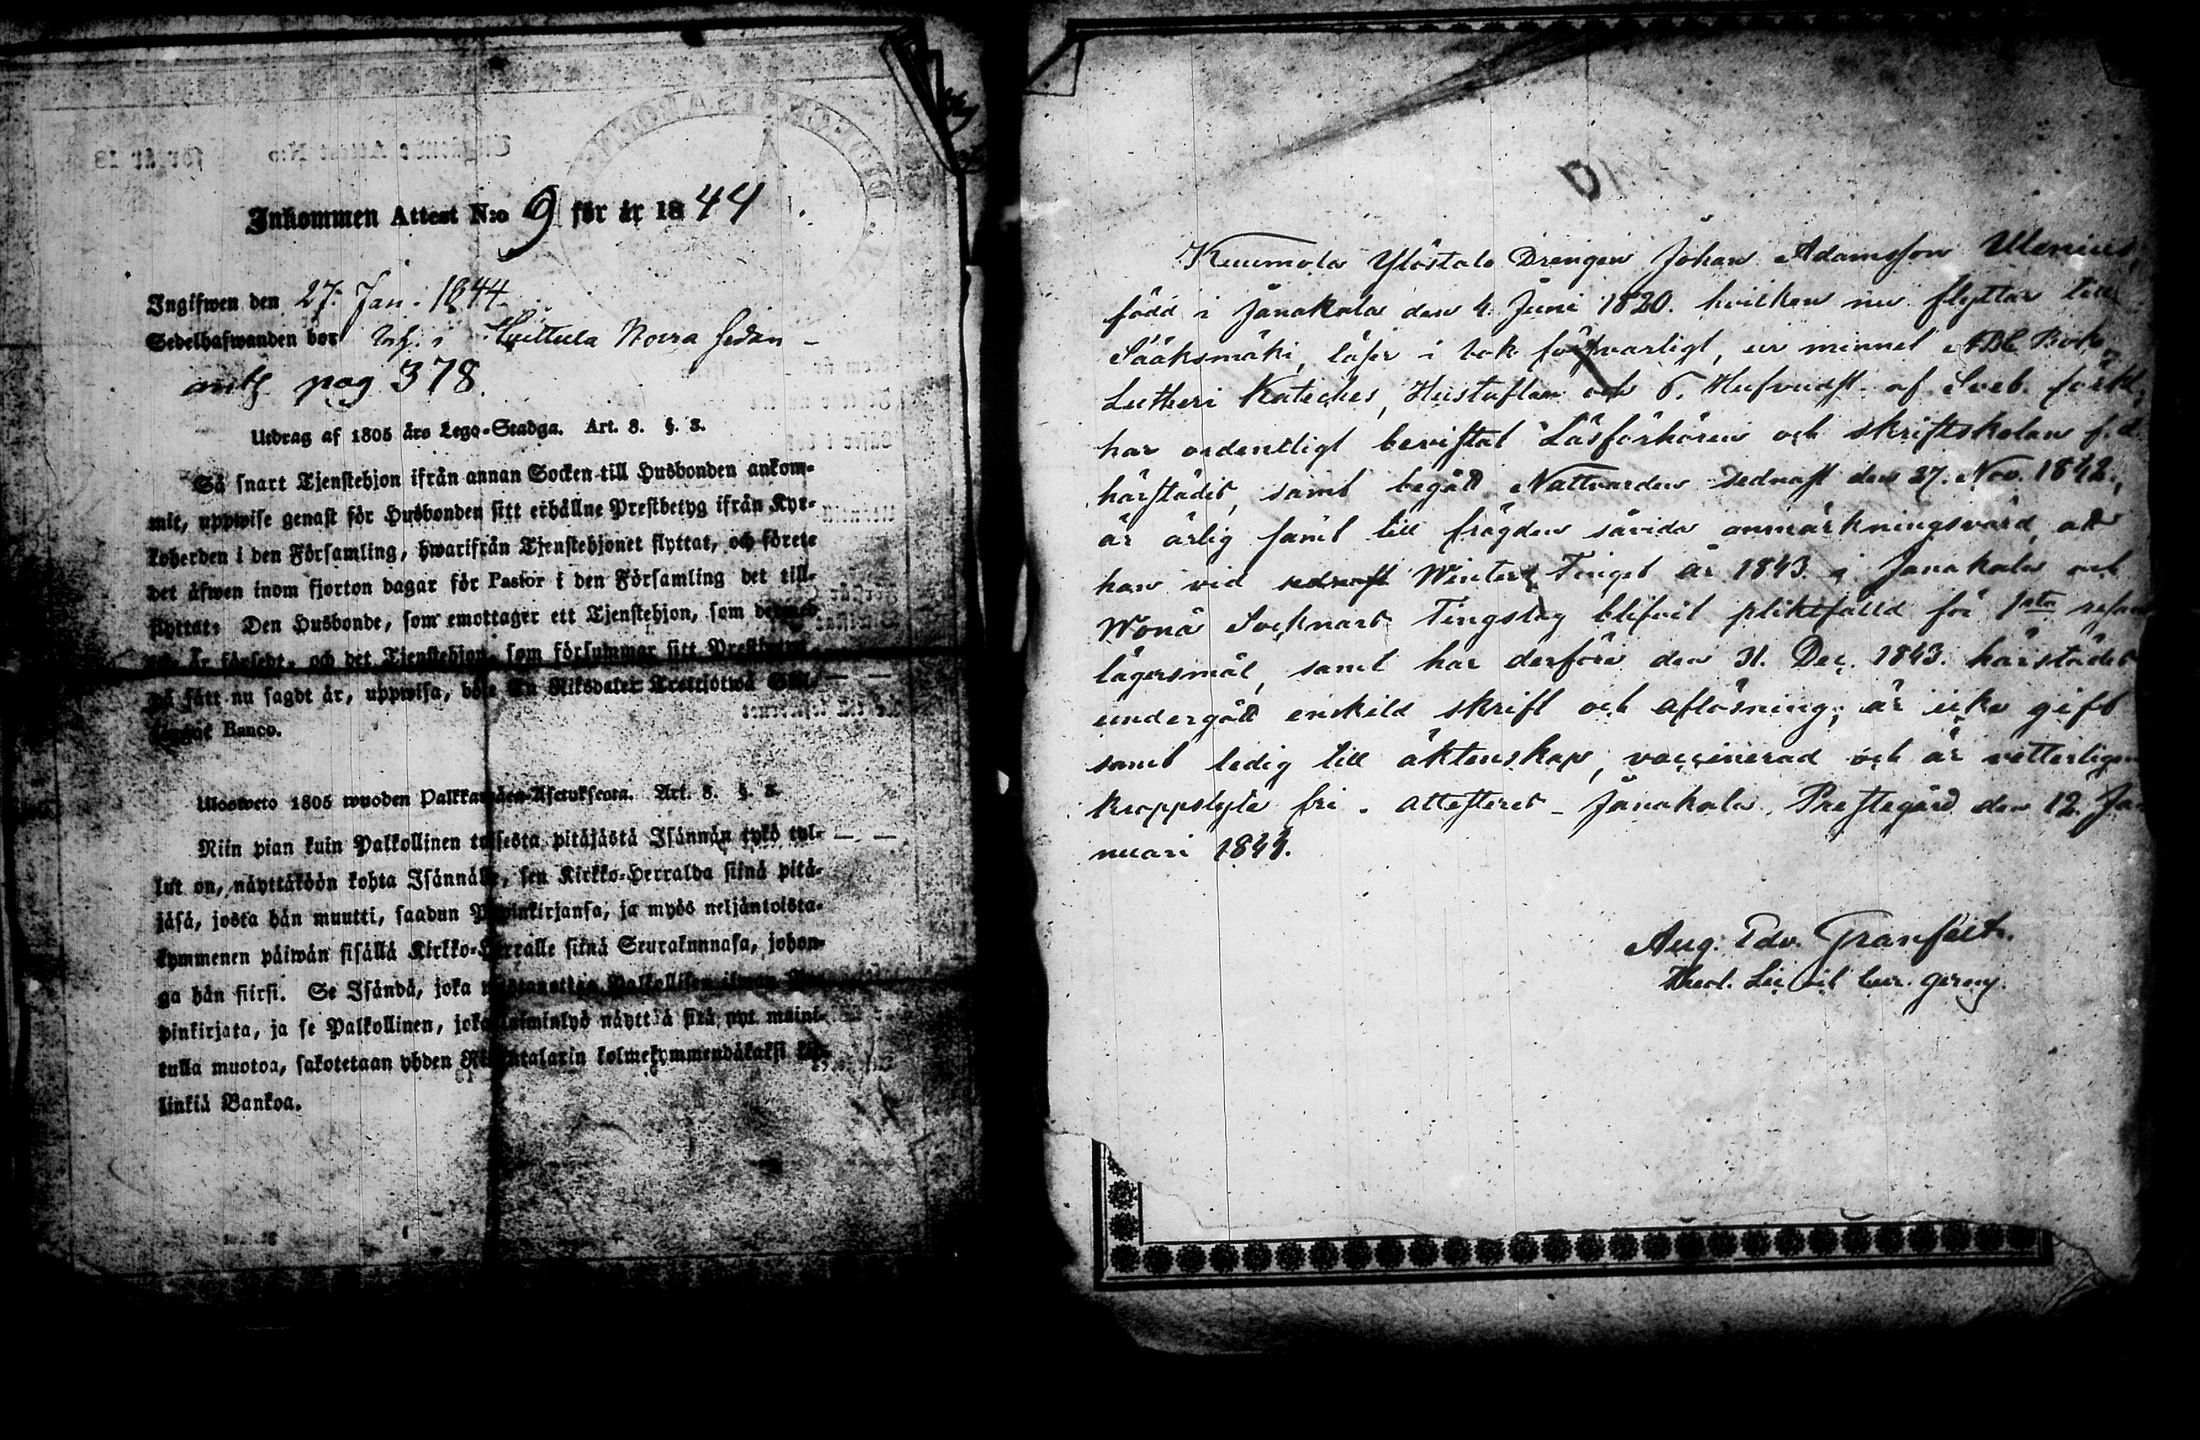 Inkommen Attest N:o 9 för år 1844
Ingifwen den 27. Jan. 1844.
Sedelhafwanden bor Inh. i Huittula Norra sedan
antg pag 378.
Utdrag af 1805 års Lego-Stadga. Art. 3. §. 3.
Så snart Tjenstehjon ifrån annan Socken till Husbonden ankom-
mit, uppwise genast för Husbonden sitt erhållne Prestbetyg ifrån Kyr-
koherden i den Församling, hwarifrån Tjenstehjonet flyttat, och förete
det äfwen inom fjorton dagar för Pastor i den Församling det till-
flyttat. Den Husbonde, som emottager ett Tjenstehjon, som dermed
ej är försedt, och det Tjenstehjon, som försummar sitt Prestbetyg
på sätt nu sagdt är, uppwisa, böte En Riksdaler Trettiotwå Skil-
lingar Banco.
Ulosweto 1805 wuoden Palkkawäen-Asetuksesta. Art. 3. §. 3.
Niin pian kuin Palkollinen toisesta pitäjästä Isännän tykö tul-
lut on, näyttäköön kohta Isännälle, sen Kirkko-Herralda siinä pitä-
jäsä, josta hän muutti, saadun Papinkirjansa, ja myös neljäntoista-
kymmenen päiwän sisällä Kirkko-Herralle siinä Seurakunnasa, johon-
ga hän siirsi. Se Isändä, joka wastaanottaa Palkollisen ilman Pa-
pinkirjata, ja se Palkollinen, joka laiminlyö näyttää sitä nyt maini-
tulla muotoa, sakotetaan yhden Riksintalarin kolmekymmendäkaksi kil-
linkiä Bankoa.
Kuumola Ylöstalo Drengen Johan Adamsson Ulenius,
född i Janakala den 4. Juni 1820. hvilken nu flyttar till
Sääksmäki, läser i bok försvarligt, ur minnet ABC Bok,
Lutheri Kateches, Hustaflan och 5. Hufvudst. af Sveb. förkl.,
har ordentligt bevistat Läsförhören och skriftskolan f.d.
härstädes, samt begått Nattvarden sednast den 27. Nov. 1842.,
är ärlig samt till frägden såvida anmärkningsvärd, att
han vid sednast Winter Tinget år 1843. i Janakala och
Wånå Socknars Tingslag blifvit pliktfälld för 1sta resan
lägersmål, samt har derföre den 31. Dec. 1843. härstädes
undergått enskild skrift och aflösning; är icke gift
samt ledig till äktenskap, vaccinerad och är vetterligen
kroppslyte fri. attesteras Janakala Prestegård den 12. Ja-
nuari 1844.
Aug. Edv. Granfelt.
Theol. Lic. och Cur. gerens.